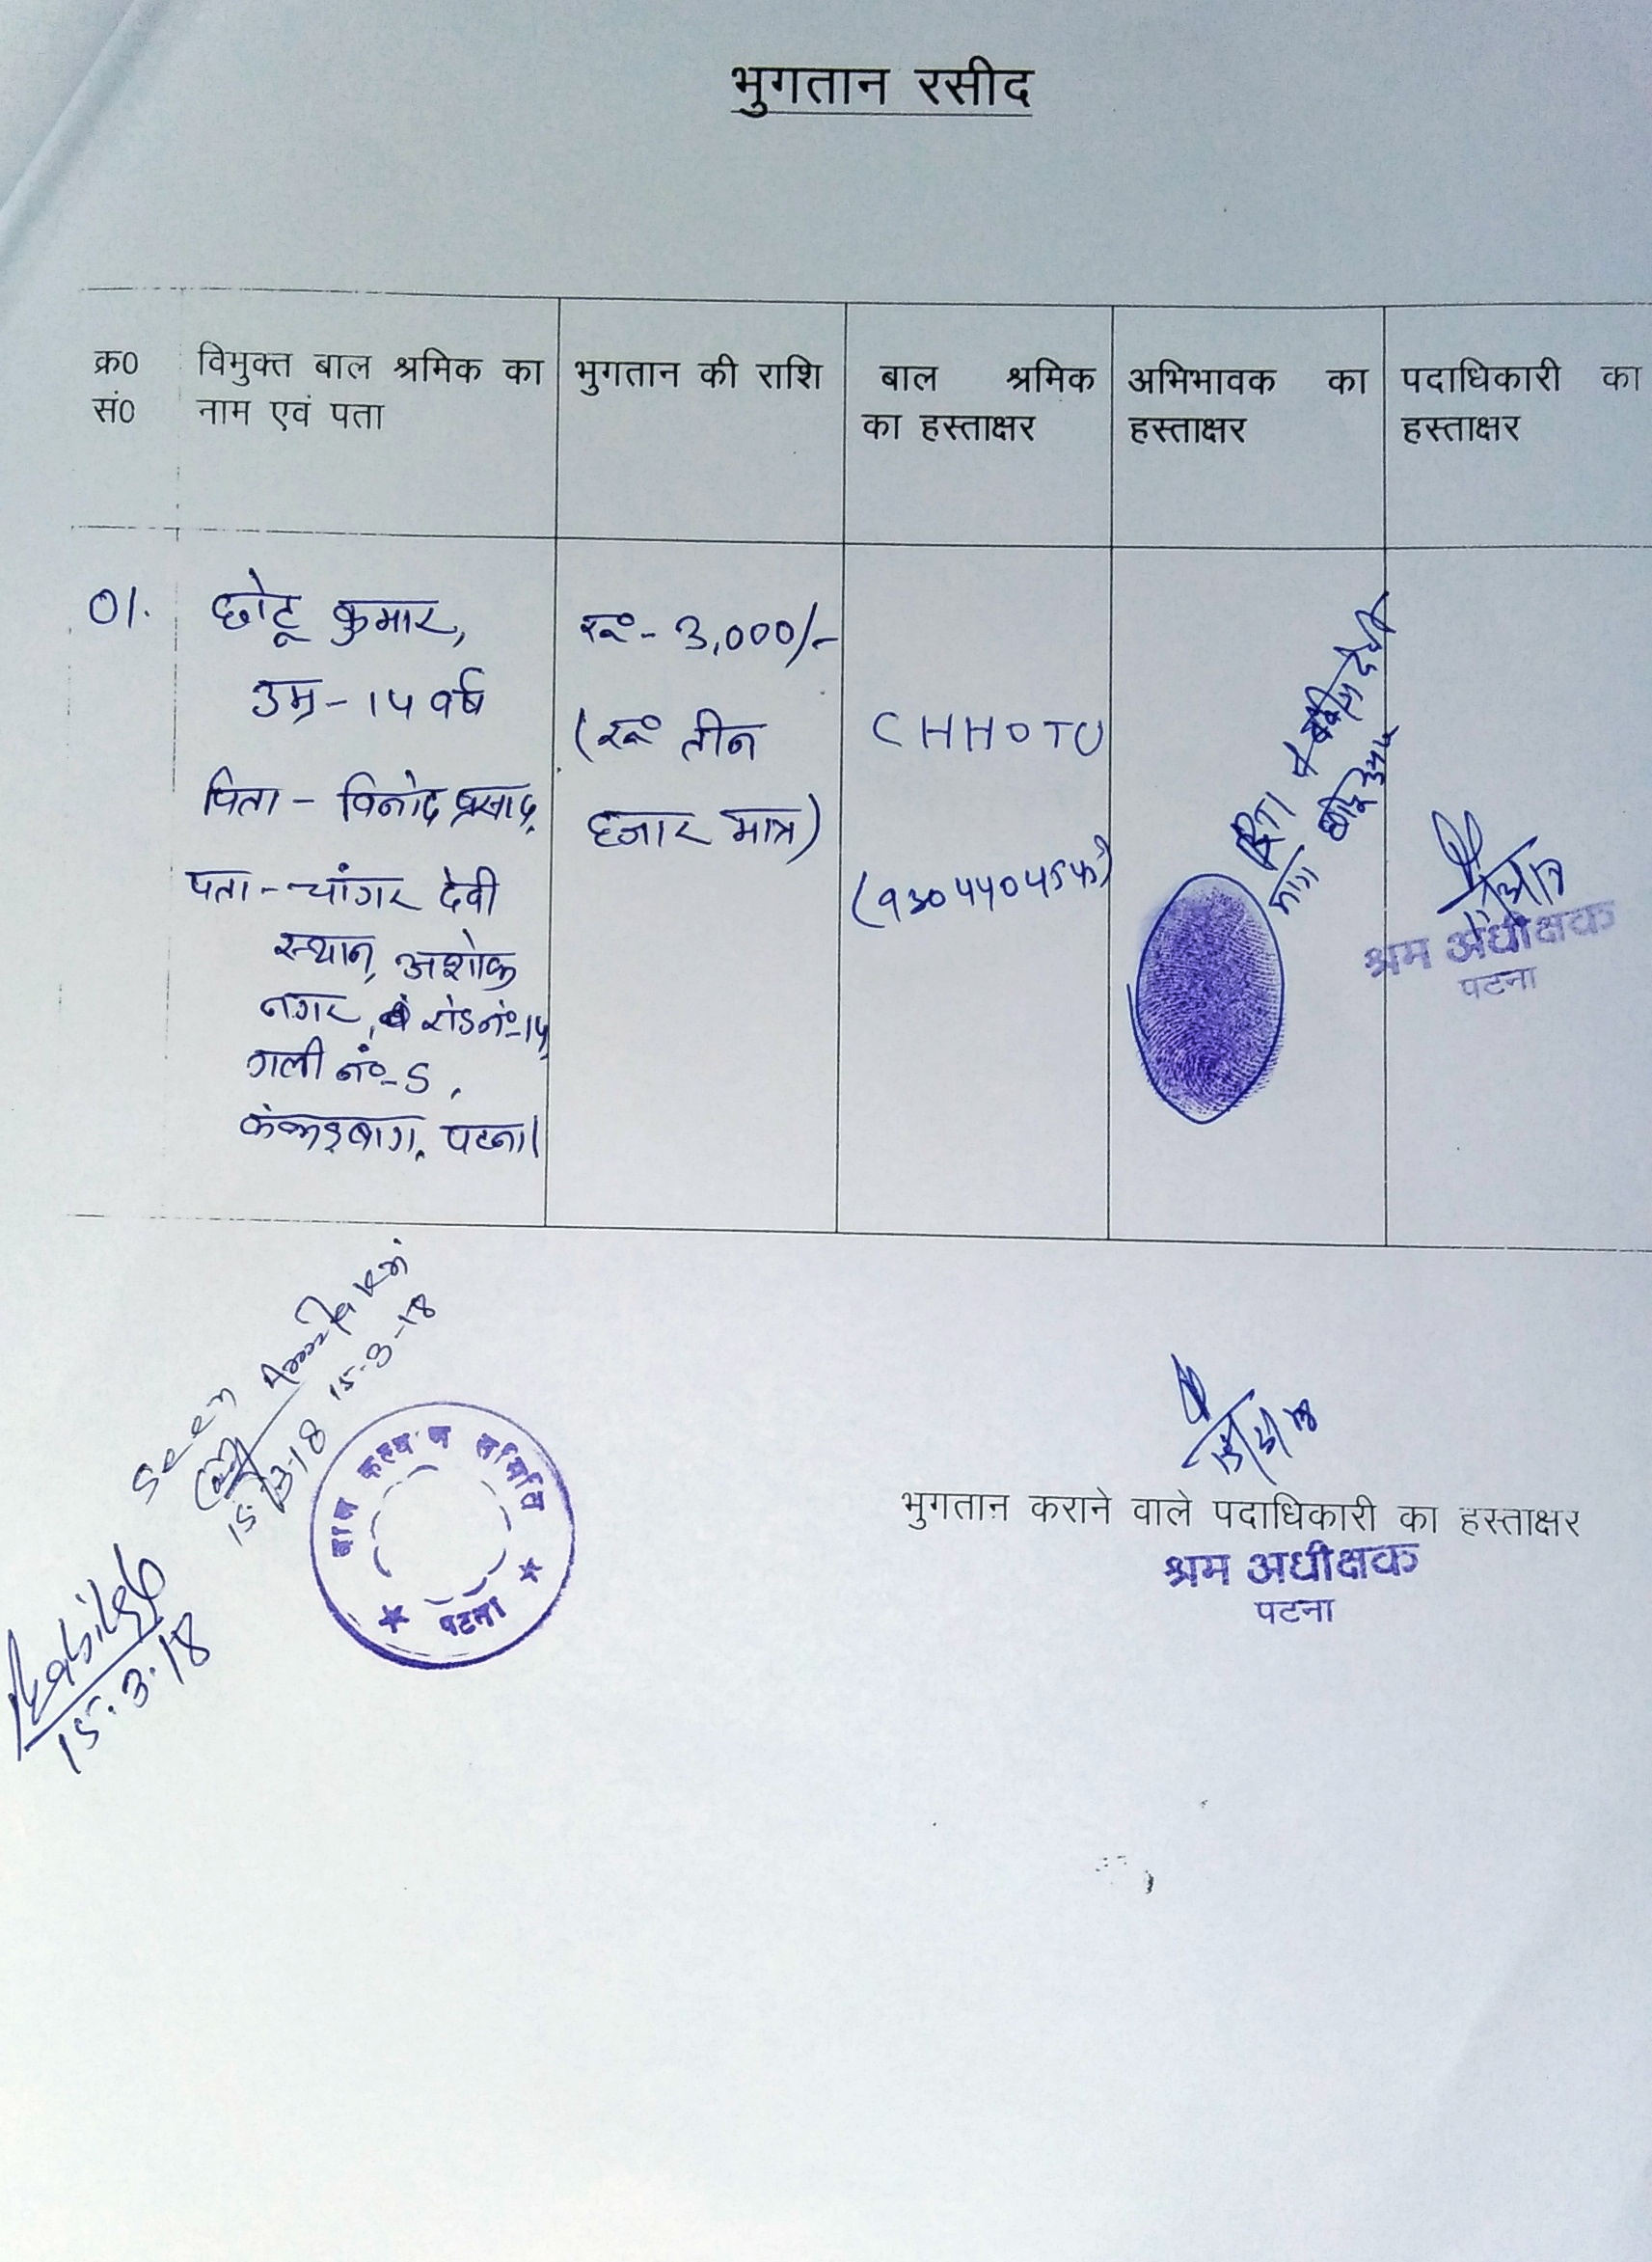 भुगतान रसीद
क्र0 सं0
विमुक्त बाल श्रमिक का नाम एवं पता
भुगतान की राशि
बाल श्रमिक का हस्ताक्षर
अभिभावक का हस्ताक्षर
पदाधिकारी का हस्ताक्षर
01.
छोटू कुमार,
उम्र - 14 वर्ष
पिता - विनोद प्रसाद,
पता - चांगर देवी
स्थान, अशोक
नगर, रोड नं०-14,
गली नं०-5,
कंकड़बाग, पटना।
रू०- 3,000/-
(रू० तीन
हजार मात्र)
CHHOTU
श्रम अधीक्षक
पटना
Seen
15-3-18
15/3/18
15.3.18
बाल कल्याण समिति
पटना
भुगतान कराने वाले पदाधिकारी का हस्ताक्षर
श्रम अधीक्षक
पटना